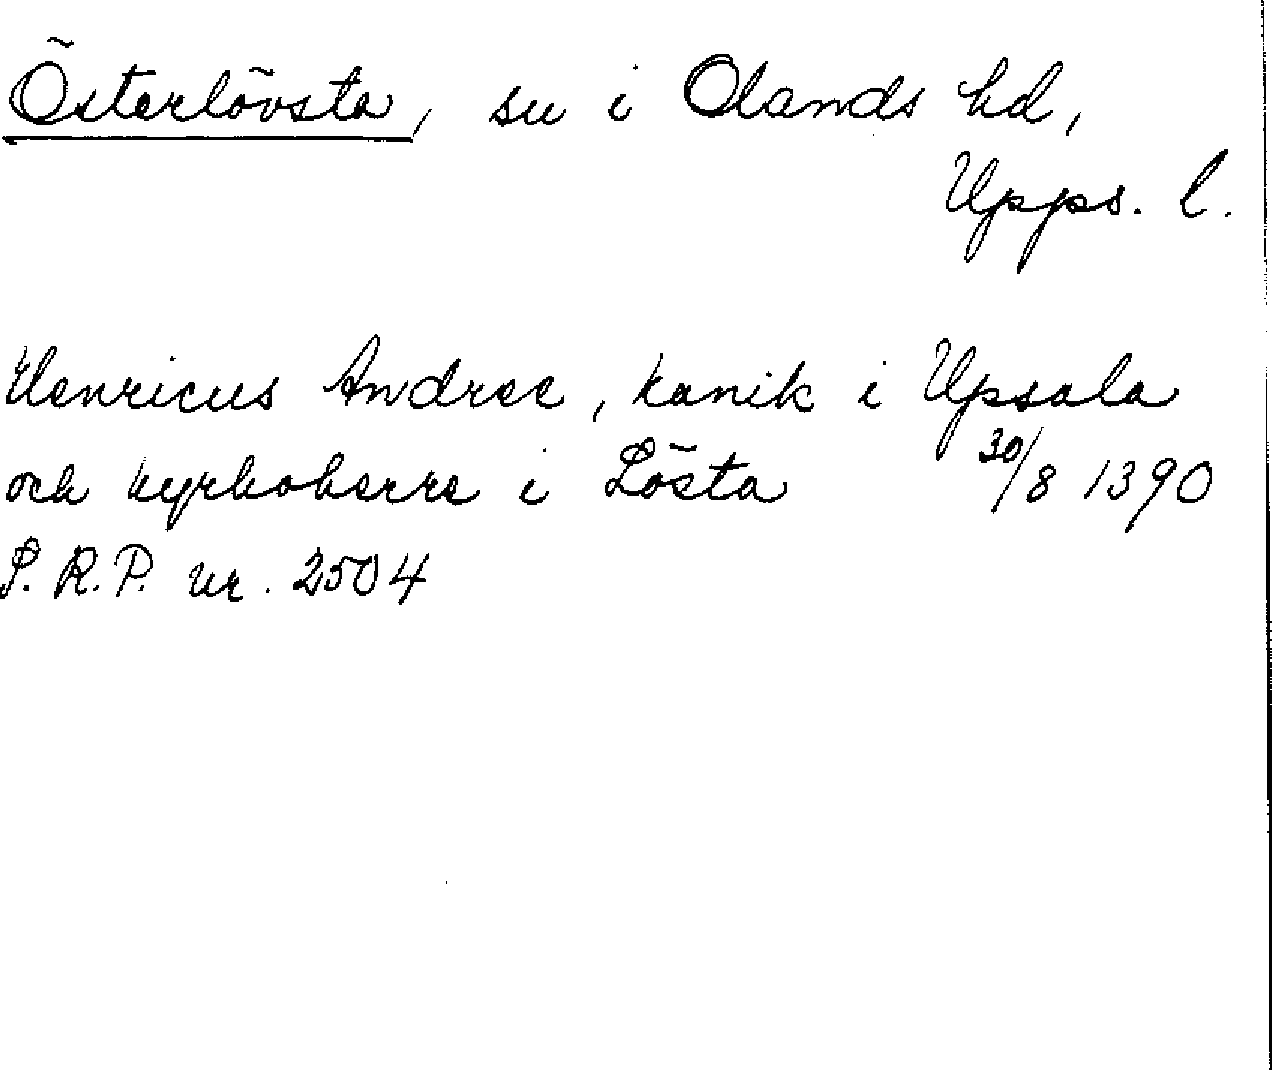 Österlövsta, sn i Olands hd,
Upps. l.
Henricus Andree, kanik i Upsala
och kyrkoherre i Lösta 30/8 1390
S.R.P. nr. 2504